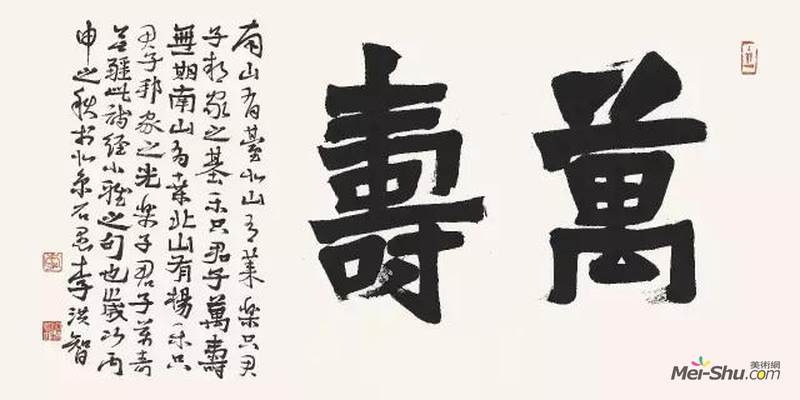 萬壽
南山有臺北山有萊楽只君
子邦家之基乐只君子萬壽
無期南山有桑北山有楊乐只
君子邦家之光楽子君子萬壽
无疆此詩經小雅之句也歲次丙
申之秋书北京石愚李洪智
美術網
Mei-Shu.com